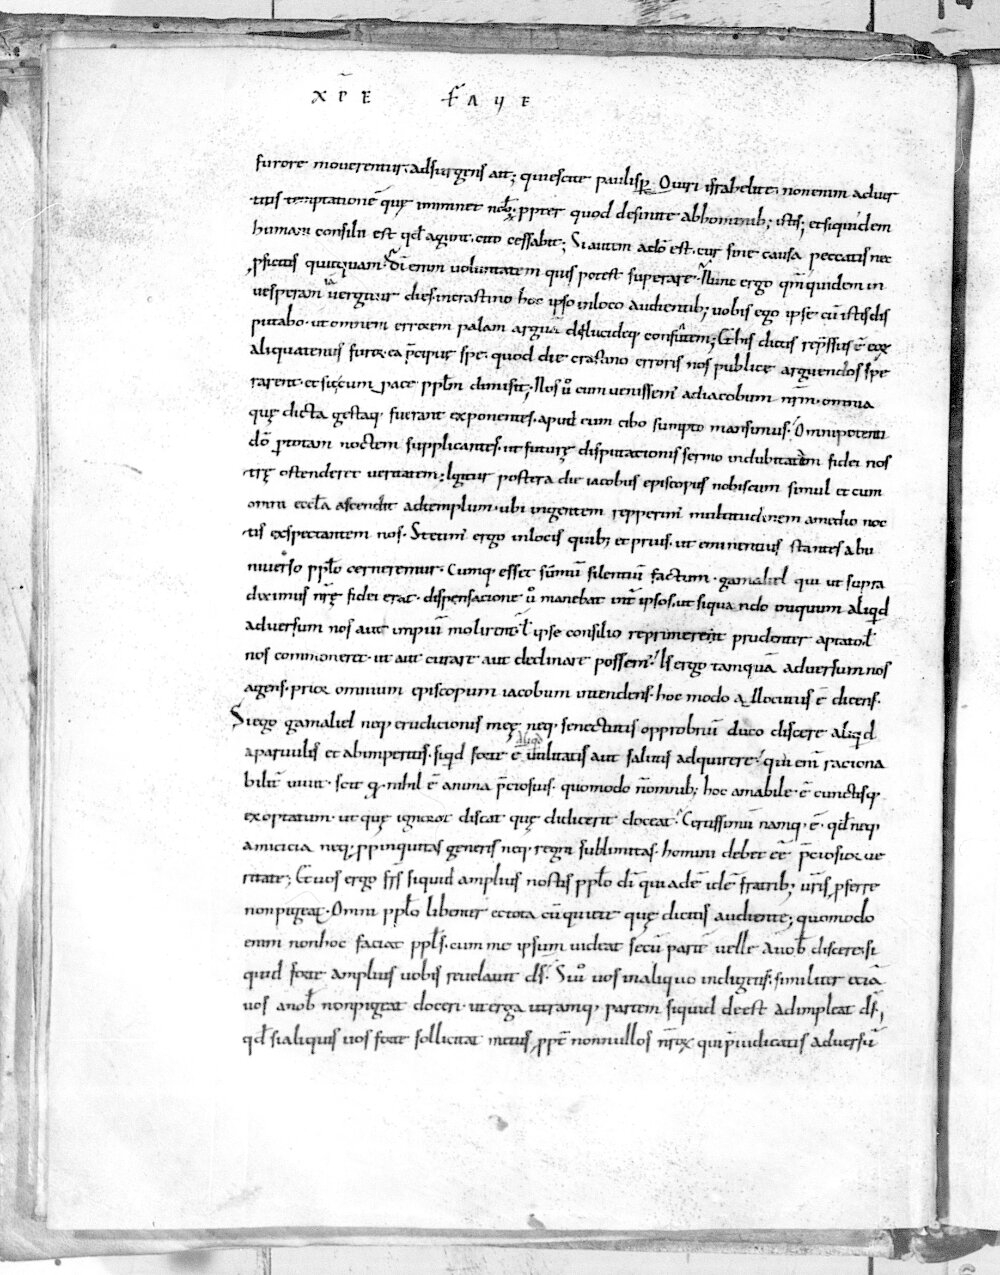 XP̄E FAVE
furore moverentur, adsurgens ait; quiescite paulisp̱ O viri israhelite, non enim adver
titis temptationē quę imminet nob̄, ꝓpter quod desinite ab hominib; istis; et siquidem
humani consilii est qđ agunt. cito cessabit; Si autem a dō est. cur sine causa peccatis nec
ꝓficitis quicquam. Dī enim voluntatem quis potest superare. Nunc ergo qm̄ quidem in
vesperam iā vergitur dies. in crastino hoc ipso in loco audientib; vobis ego ipse cū istis dis
putabo. ut omnem errorem palam arguā dilucideq; confutem; His dictis rep̄ssus ē eoꝝ
aliquatenus furor ea p̄cipue spe. quod die crastino erroris nos publice arguendos spe
rarent. et sic cum pace ppłm dimisit; Nos ů cum venissem̄ ad iacobum nr̄m. omnia
quę dicta gestaq; fuerant exponentes. apud eum cibo sumpto mansimus. Omnipotenti
dō ꝑ totam noctem supplicantes. ut futurę disputacionis sermo indubitatam fidei nos
trę ostenderet veritatem; Igitur postera die iacobus episcopus nobiscum simul et cum
omni ecctła ascendit ad templum. ubi ingentem repperim̄ multitudinem a medio noc
tis exspectantem nos. Stetim̄ ergo in locis quib; et prius. ut eminentius stantes ab u
niverso ppło cerneremur. Cumq; esset sūmū silentiū factum. gamaliel qui ut supra
diximus nr̄ę fidei erat. dispensacione ů manebat int̄ ipsos. ut si quando iniquum aliqđ
adversum nos aut impiū molirent̄ ł ipse consilio reprimeret prudenter aptato ł
nos commoneret. ut aut curare aut declinare possem̄. Is ergo tamquā adversum nos
agens. prior omnium episcopum iacobum intendens. hoc modo allocutus ē dicens.
Si ego gamaliel neq; erudicionis meę neq; senectutis opprobriū duco discere aliqđ
aliqđ
a parvulis et ab imperitis. siqđ forte ē utilitatis aut salutis adquirere. qui enī raciona
bilit̄ vivit. scit qꝫ nihil ē anima p̄ciosius. quomodo n̄ omnib; hoc amabile. ē cunctisq;
exoptatum. ut quę ignorat discat quę didicerit doceat. Certissimū namq; ē. qđ neq;
amicicia neq; ꝓpinquitas generis neq; regni sublimitas. homini debet eē p̄ciosior ve
ritate; Et vos ergo frs̄ siquid amplius nostis ppło dī qui adē idē fratrib; vr̄is ꝓferre
non pigeat. Omni ppło libenter et tota cū quiete quę dicitis audiente; quomodo
enim non hoc faciat ppłs. cum me ipsum videat secū parit̄ velle a vob̄ discere. si
quid forte amplius vobis revelavit dś. Si ů vos in aliquo indigetis. similiter eciā
vos a nob̄ non pigeat doceri. ut erga utramq; partem siquid deest adimpleat dś;
qđ si aliquis vos forte sollicitat metus ꝓpt̄ nonnullos nr̄oꝝ qui p̄iudicatis adversū